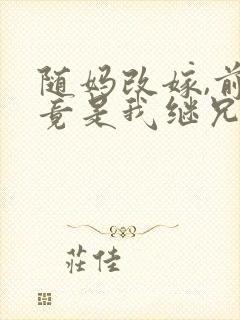 随妈改嫁,前
竟是我继兄
莊佳